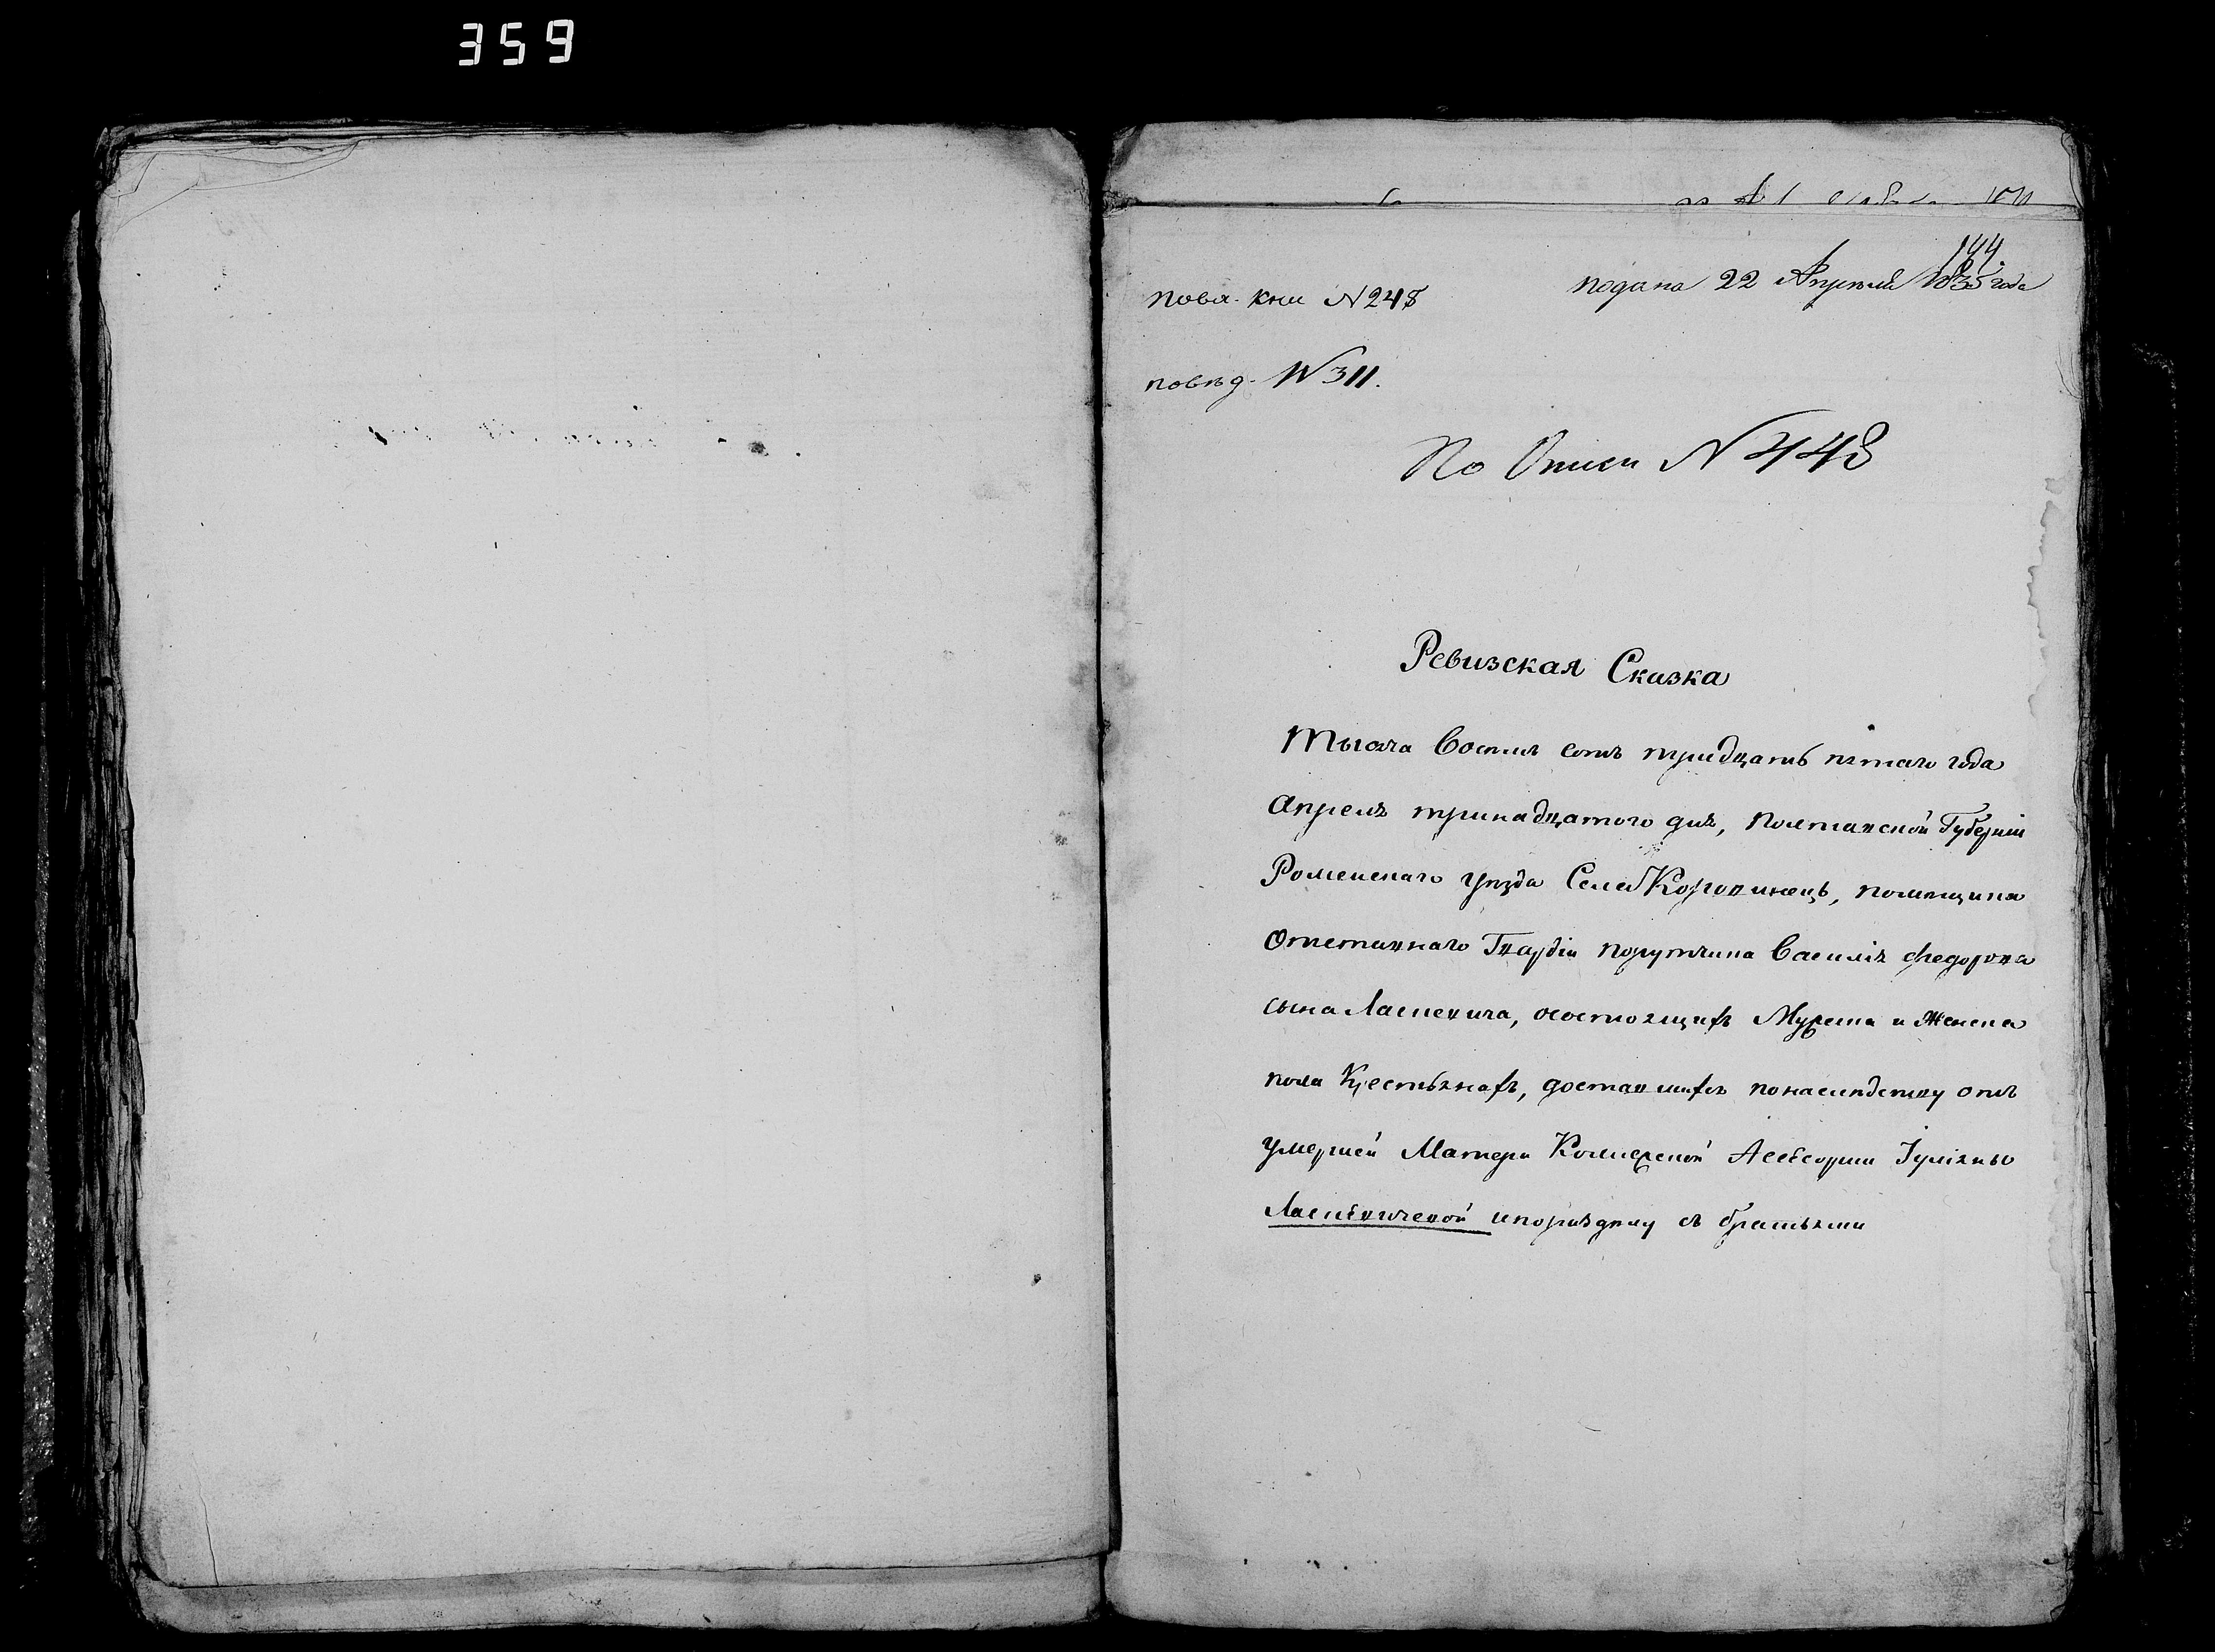 359
144
подана 22 Апреля 1835 года
по вх. кни N 248
по вѣд. N 311.
По Описи N 448
Ревизская Сказка
Тысяча Восемь сотъ тридцать пятаго года
Апреля тринадцатого дня, Полтавской Губерніи
Роменскаго уѣзда Села Коровинецъ, помѣщика
Отставнаго Гвардіи порутчика Василія Федорова
сына Ласкевича, осостоящихъ Мужеска и Женска
пола Крестьянахъ, доставшихся понаследству отъ
умершей Матери Колежской Асессорши Іуліяны
Ласкевичевой ипоразделу съ братьями